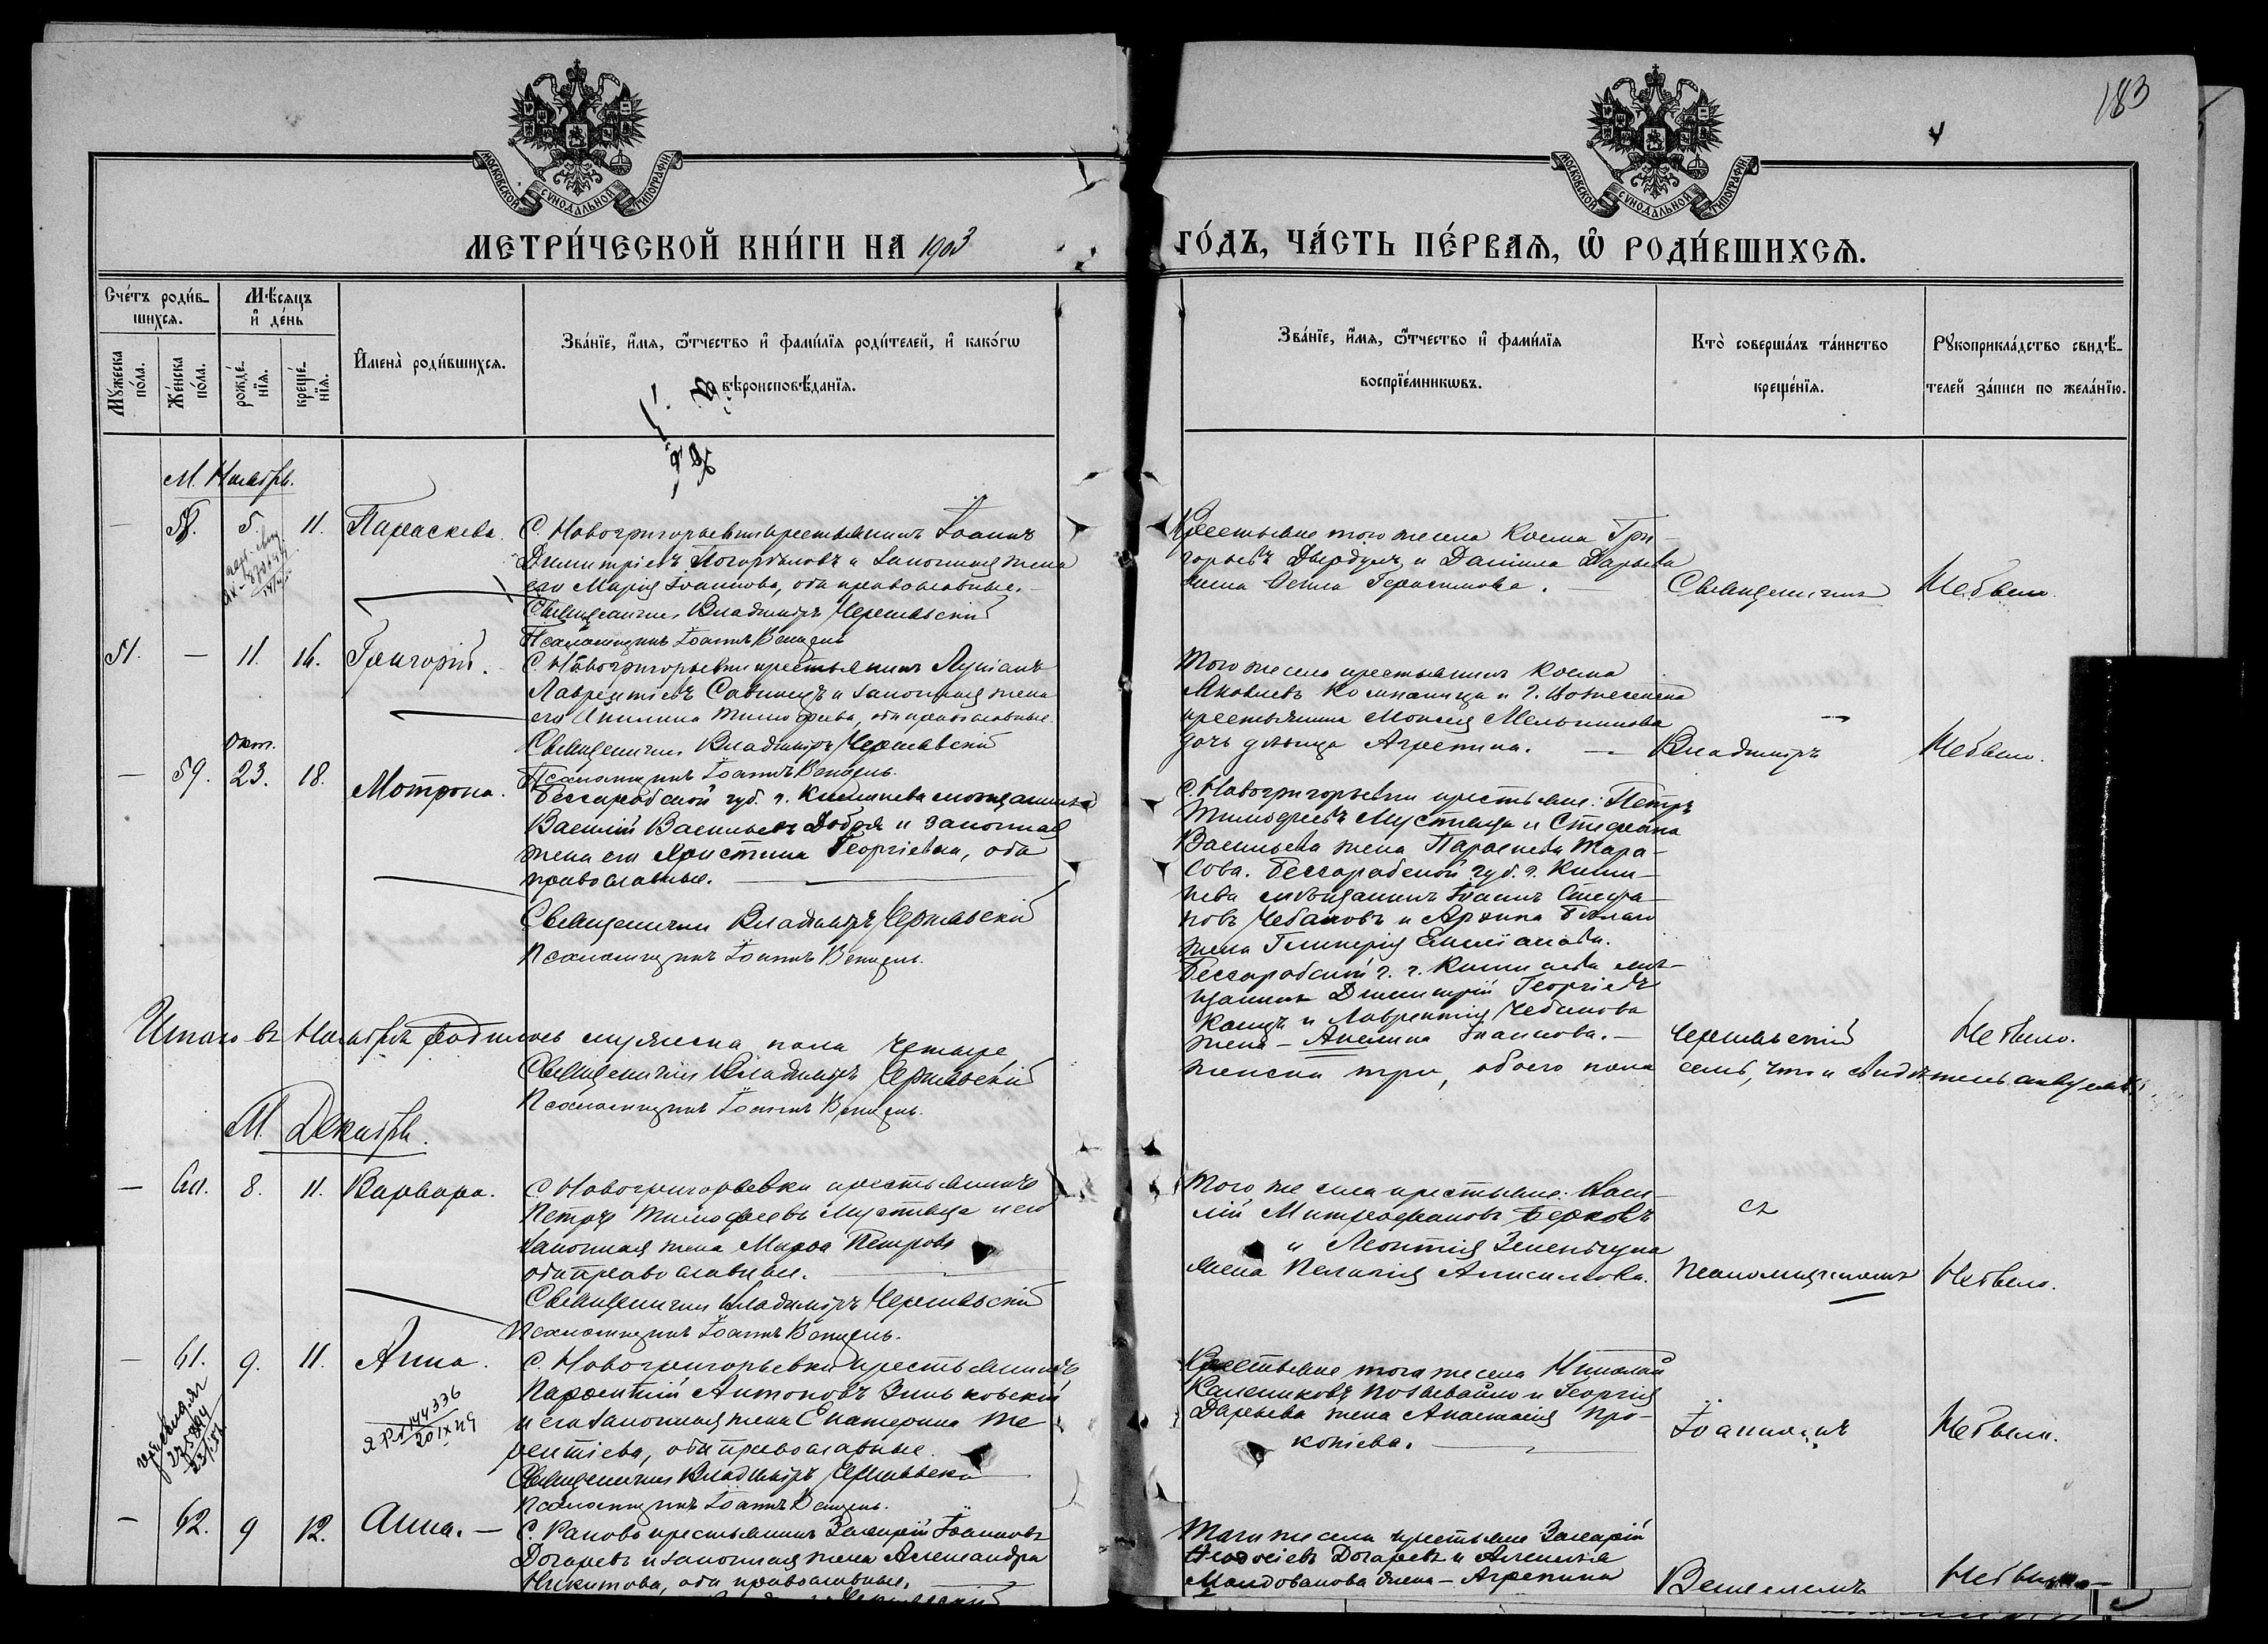 183
МОСКОВСКОЙ СУНОДАЛЬНОЙ ТИПОГРАФІИ
МОСКОВСКОЙ СУНОДАЛЬНОЙ ТИПОГРАФІИ
МЕТРИ́ЧЕСКОЙ КНИ́ГИ НА 1903
ГО́ДЪ, ЧА́СТЬ ПЕ́РВАЯ, Ѡ҆ РОДИ́ВШИХСЯ.
Сче́тъ роди́в-
шихся.
Мѣ́сяцъ
и҆ де́нь
Мꙋ́жеска
по́ла.
Же́нска
по́ла.
рожде́-
нїя.
креще́-
нїя.
И҆мена̀ роди́вшихся.
Зва́нїе, и҆́мя, ѻ҆́тчество и҆ фами́лїя роди́телей, и҆ како́гѡ
вѣроисповѣ́данїя.
Зва́нїе, и҆́мя, ѻ҆́тчество и҆ фами́лїя
воспрїе́мникѡвъ.
Кто̀ соверша́лъ та́инство
креще́нїя.
Рꙋкоприкла́дство свидѣ́-
телей за́писи по жела́нїю.
М. Ноябрь.
— 58. 5. 11. Параскева.
С. Новогригорьевки крестьянинъ Іоаннъ
Димитріевъ Погорѣловъ и законная жена
его Марія Іоаннова, оба православные. —
Священникъ Владиміръ Чернявскій
Псаломщикъ Іоаннъ Венцель
Крестьяне того же села Косма Гри-
горьевъ и Даниила Дарьева
жена Ѳекла Герасимова. —
Священникъ
Не было.
51. — 11. 16. Григорій.
С. Новогригорьевки крестьянинъ Лукіанъ
Лаврентіевъ Савицкъ и законная жена
его Акилина Тимофеева, оба православные.
Священникъ Владиміръ Чернявскій
Псаломщикъ Іоаннъ Венцель.
Того же села крестьянинъ Косма
Яковлевъ Компаница и г. Вознесенска
крестьянина Моисея Мельникова
дочь дѣвица Агрепина. —
Владиміръ
Не было.
Окт.
— 59. 23. 18. Мотрона.
Бессарабской губ. г. Кишинева мѣщанинъ
Василій Васильевъ Добря и законная
жена его Христина Георгіевна, оба
православные. —
Священникъ Владиміръ Чернявскій
Псаломщикъ Іоаннъ Венцель.
С. Новогригорьевки крестьяне: Петръ
Тимофеевъ Мустяца и Стефана
Васильева жена Параскева Тара-
сова. Бессарабской губ. г. Киши-
нева мѣщанинъ Іоаннъ Стефа-
новъ Чебановъ и
жена Гликерія Емиліанова.
Бессарабской г. г. Кишинева мѣ-
щанинъ Димитрій Георгіевъ
и Лаврентія Чебанова
жена — Акилина Іоаннова. —
Чернявскій
Не было.
Итого въ Ноябрѣ родилось мужеска пола четыре,
женска три, обоего пола семь, что и свидѣтельствуемъ.
Священникъ Владиміръ Чернявскій
Псаломщикъ Іоаннъ Венцель.
М. Декабрь.
— 60. 8. 11. Варвара.
С. Новогригорьевки крестьянинъ
Петръ Тимофеевъ Мустяца и его
законная жена Марѳа Петрова
оба православные. —
Священникъ Владиміръ Чернявскій
Псаломщикъ Іоаннъ Венцель.
Того же села крестьяне: Васи-
лій Митрофановъ Берковъ
и Леонтія
жена Пелагія Анисимова.
съ
псаломщикомъ
Не было.
— 61. 9. 11. Анна.
С. Новогригорьевки крестьянинъ
Парѳентій Антоновъ Зиньковскій
и его законная жена Екатерина Те-
рентіева, оба православные.
Священникъ Владиміръ Чернявскій
Псаломщикъ Іоаннъ Венцель.
144336
20 IX 49
Крестьяне того же села Николай
и Георгія
Дарьева жена Анастасія Про-
копіева. —
Іоанномъ
Не было.
— 62. 9 12. Анна. —
С. Ракова крестьянинъ Захарій Іоанновъ
Догаревъ и законная жена Александра
Никитова, оба православные. —
Того же села крестьяне Захарій
Ѳеодосіевъ Догаревъ и Алексѣя
Молдованова жена — Агрепина
Венцелемъ
Не было —